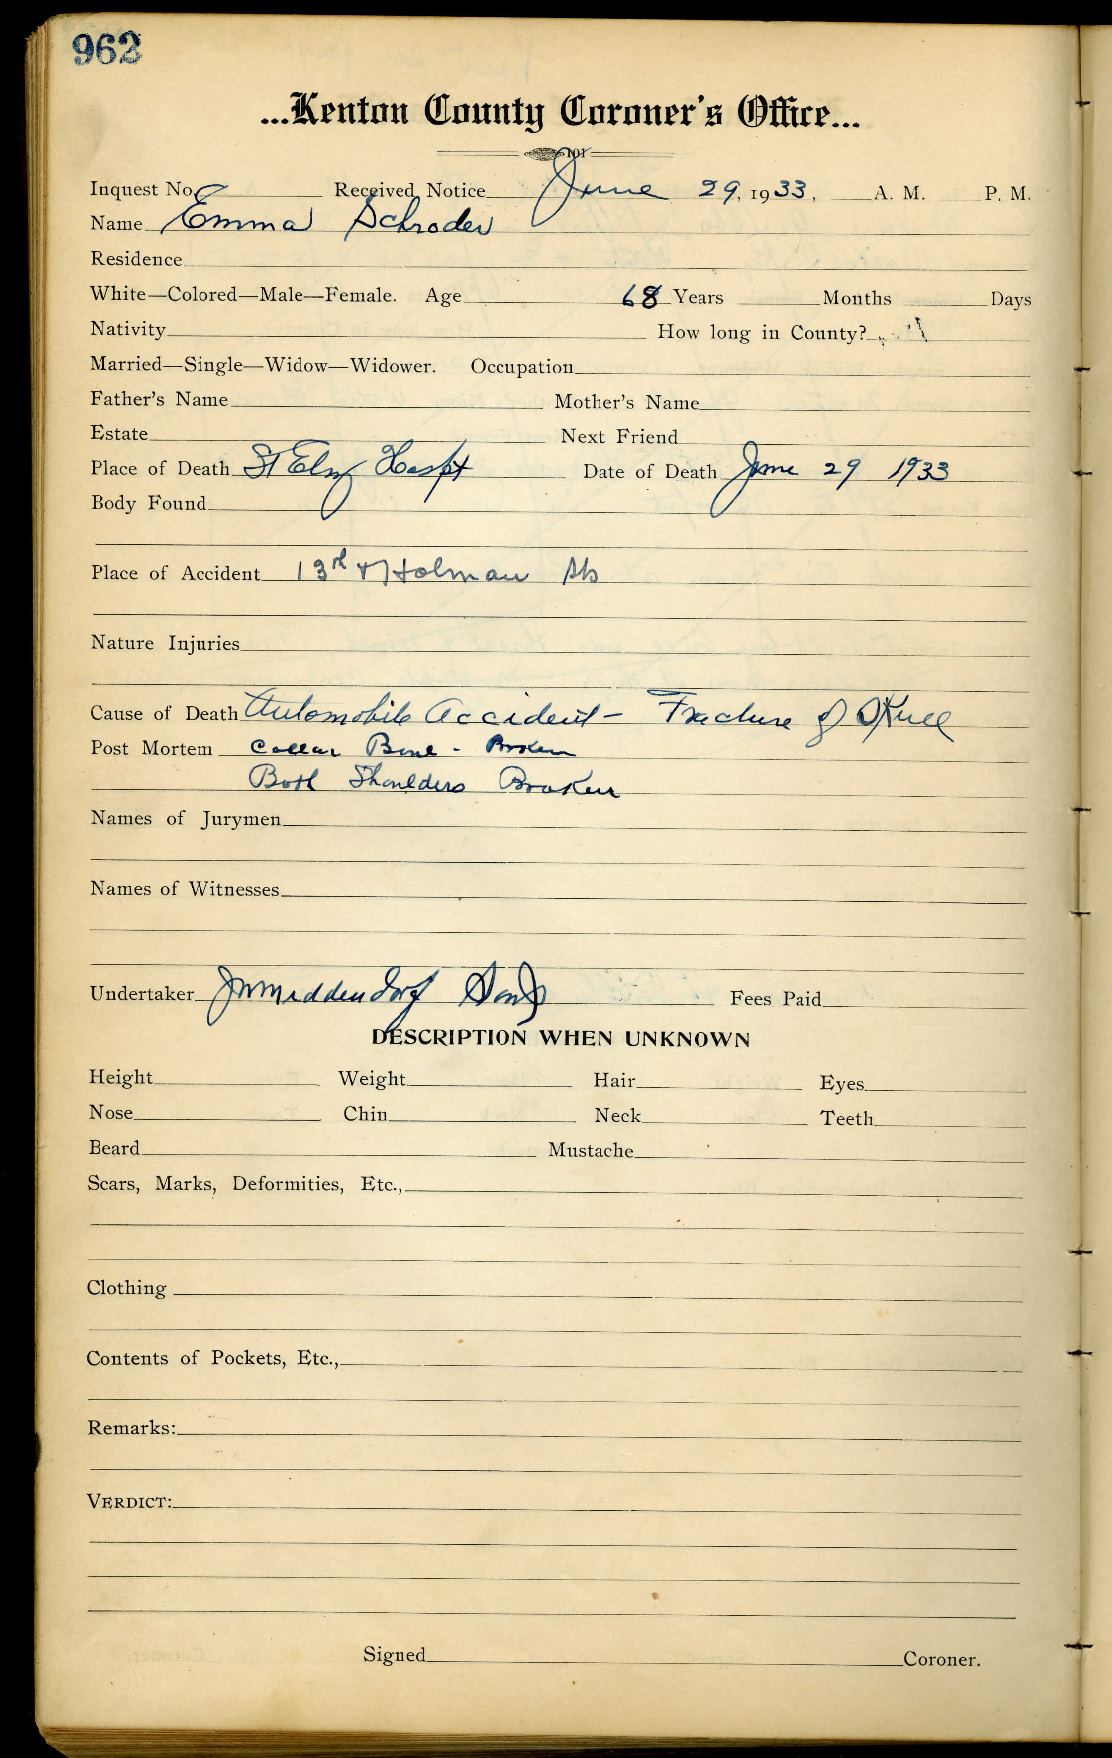 962
...Kenton County Coroner's Office...
101
Inquest No. Received Notice June 29, 1933, A. M. P. M.
Name Emma Schroder
Residence
White—Colored—Male—Female. Age 68 Years Months Days
Nativity How long in County?
Married—Single—Widow—Widower. Occupation
Father's Name Mother's Name
Estate Next Friend
Place of Death St Elz Hospt Date of Death June 29 1933
Body Found
Place of Accident 13th & Holman Sts
Nature Injuries
Cause of Death Automobile Accident - Fracture of Skull
Post Mortem Collar Bone - Broken
Both Shoulders Broken
Names of Jurymen
Names of Witnesses
Undertaker Middendorf Sons Fees Paid
DESCRIPTION WHEN UNKNOWN
Height Weight Hair Eyes
Nose Chin Neck Teeth
Beard Mustache
Scars, Marks, Deformities, Etc.,
Clothing
Contents of Pockets, Etc.,
Remarks:
VERDICT:
Signed Coroner.